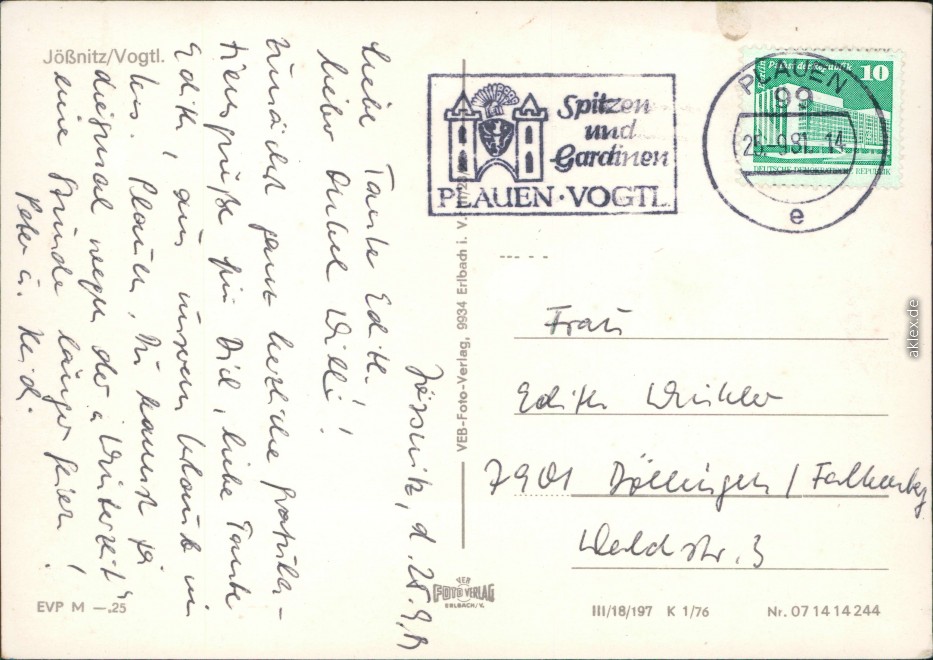 Jößnitz/Vogtl.
Jössnitz, d. 25.9.81
Liebe Tante Edith.
lieber Onkel Willi!
Zunächst ganz herzliche Gratula-
tionsgrüße für Dich, liebe Tante
Edith! aus unserem Urlaub in
bei Plauen. Du kannst ja
diesmal wegen der "Winterzeit"
eine Stunde länger feiern!
Peter u. Heid.
EVP M —.25
VEB-Foto-Verlag, 9934 Erlbach i. V.
VER
FOTO VERLAG
ERLBACH/V.
Spitzen
und
Gardinen
PLAUEN · VOGTL.
PLAUEN
99
25.-9.81.-14
e
Berlin Palast der Republik 10
DEUTSCHE DEMOKRATISCHE REPUBLIK
Frau
Edith Winkler
7901 Döllingen / Falkenberg
Waldstr. 3
III/18/197 K 1/76 Nr. 07 14 14 244
aklex.de